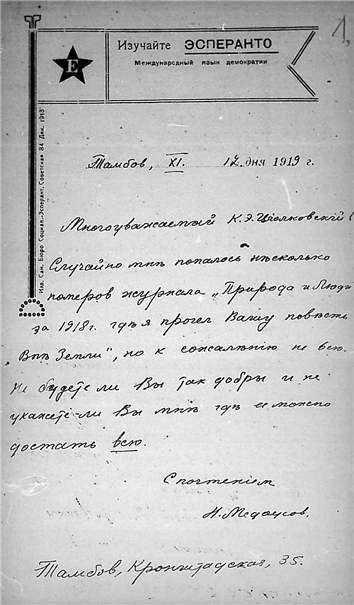 1,
Изучайте ЭСПЕРАНТО
Международный язык демократии
E
Изд. Сам. Бюро Социал.-Эсперант. Советская 84. Дек. 1918
Тамбов, XI. 12 дня 1919 г.
Многоуважаемый К.Э. Циолковский!
Случайно мнѣ попалось нѣсколько
номеров журнала „Природа и Люди“
за 1918 г. гдѣ я прочел Вашу повѣсть
„Внѣ Земли“, но к сожалѣнію не всю.
Не будете ли Вы так добры и не
укажете-ли Вы мнѣ гдѣ ее можно
достать всю.
С почтеніем
Тамбов, Кронштадская, 35.